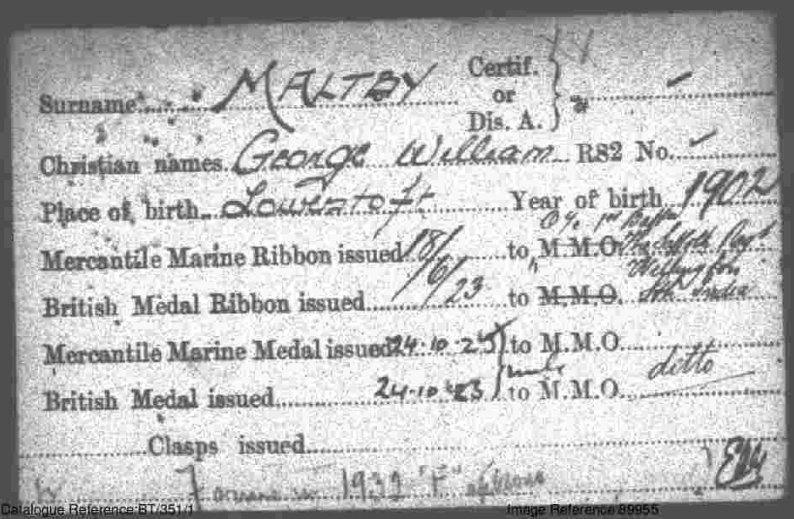 Surname MALTBY Certif. or Dis. A.
Christian names. George William RS2 No.
Place of birth. Lowestoft Year of birth 1902
O/c. 1st Battn
Mercantile Marine Ribbon issued 18/6/23 to M.M.O. The Suffolk Regt
Wellington
British Medal Ribbon issued to M.M.O. Sth India
Mercantile Marine Medal issued 24.10.23 to M.M.O.
British Medal issued 24-10-23 to M.M.O. ditto
Clasps issued
1932 "F"
Catalogue Reference:BT/351/1 Image Reference:89955